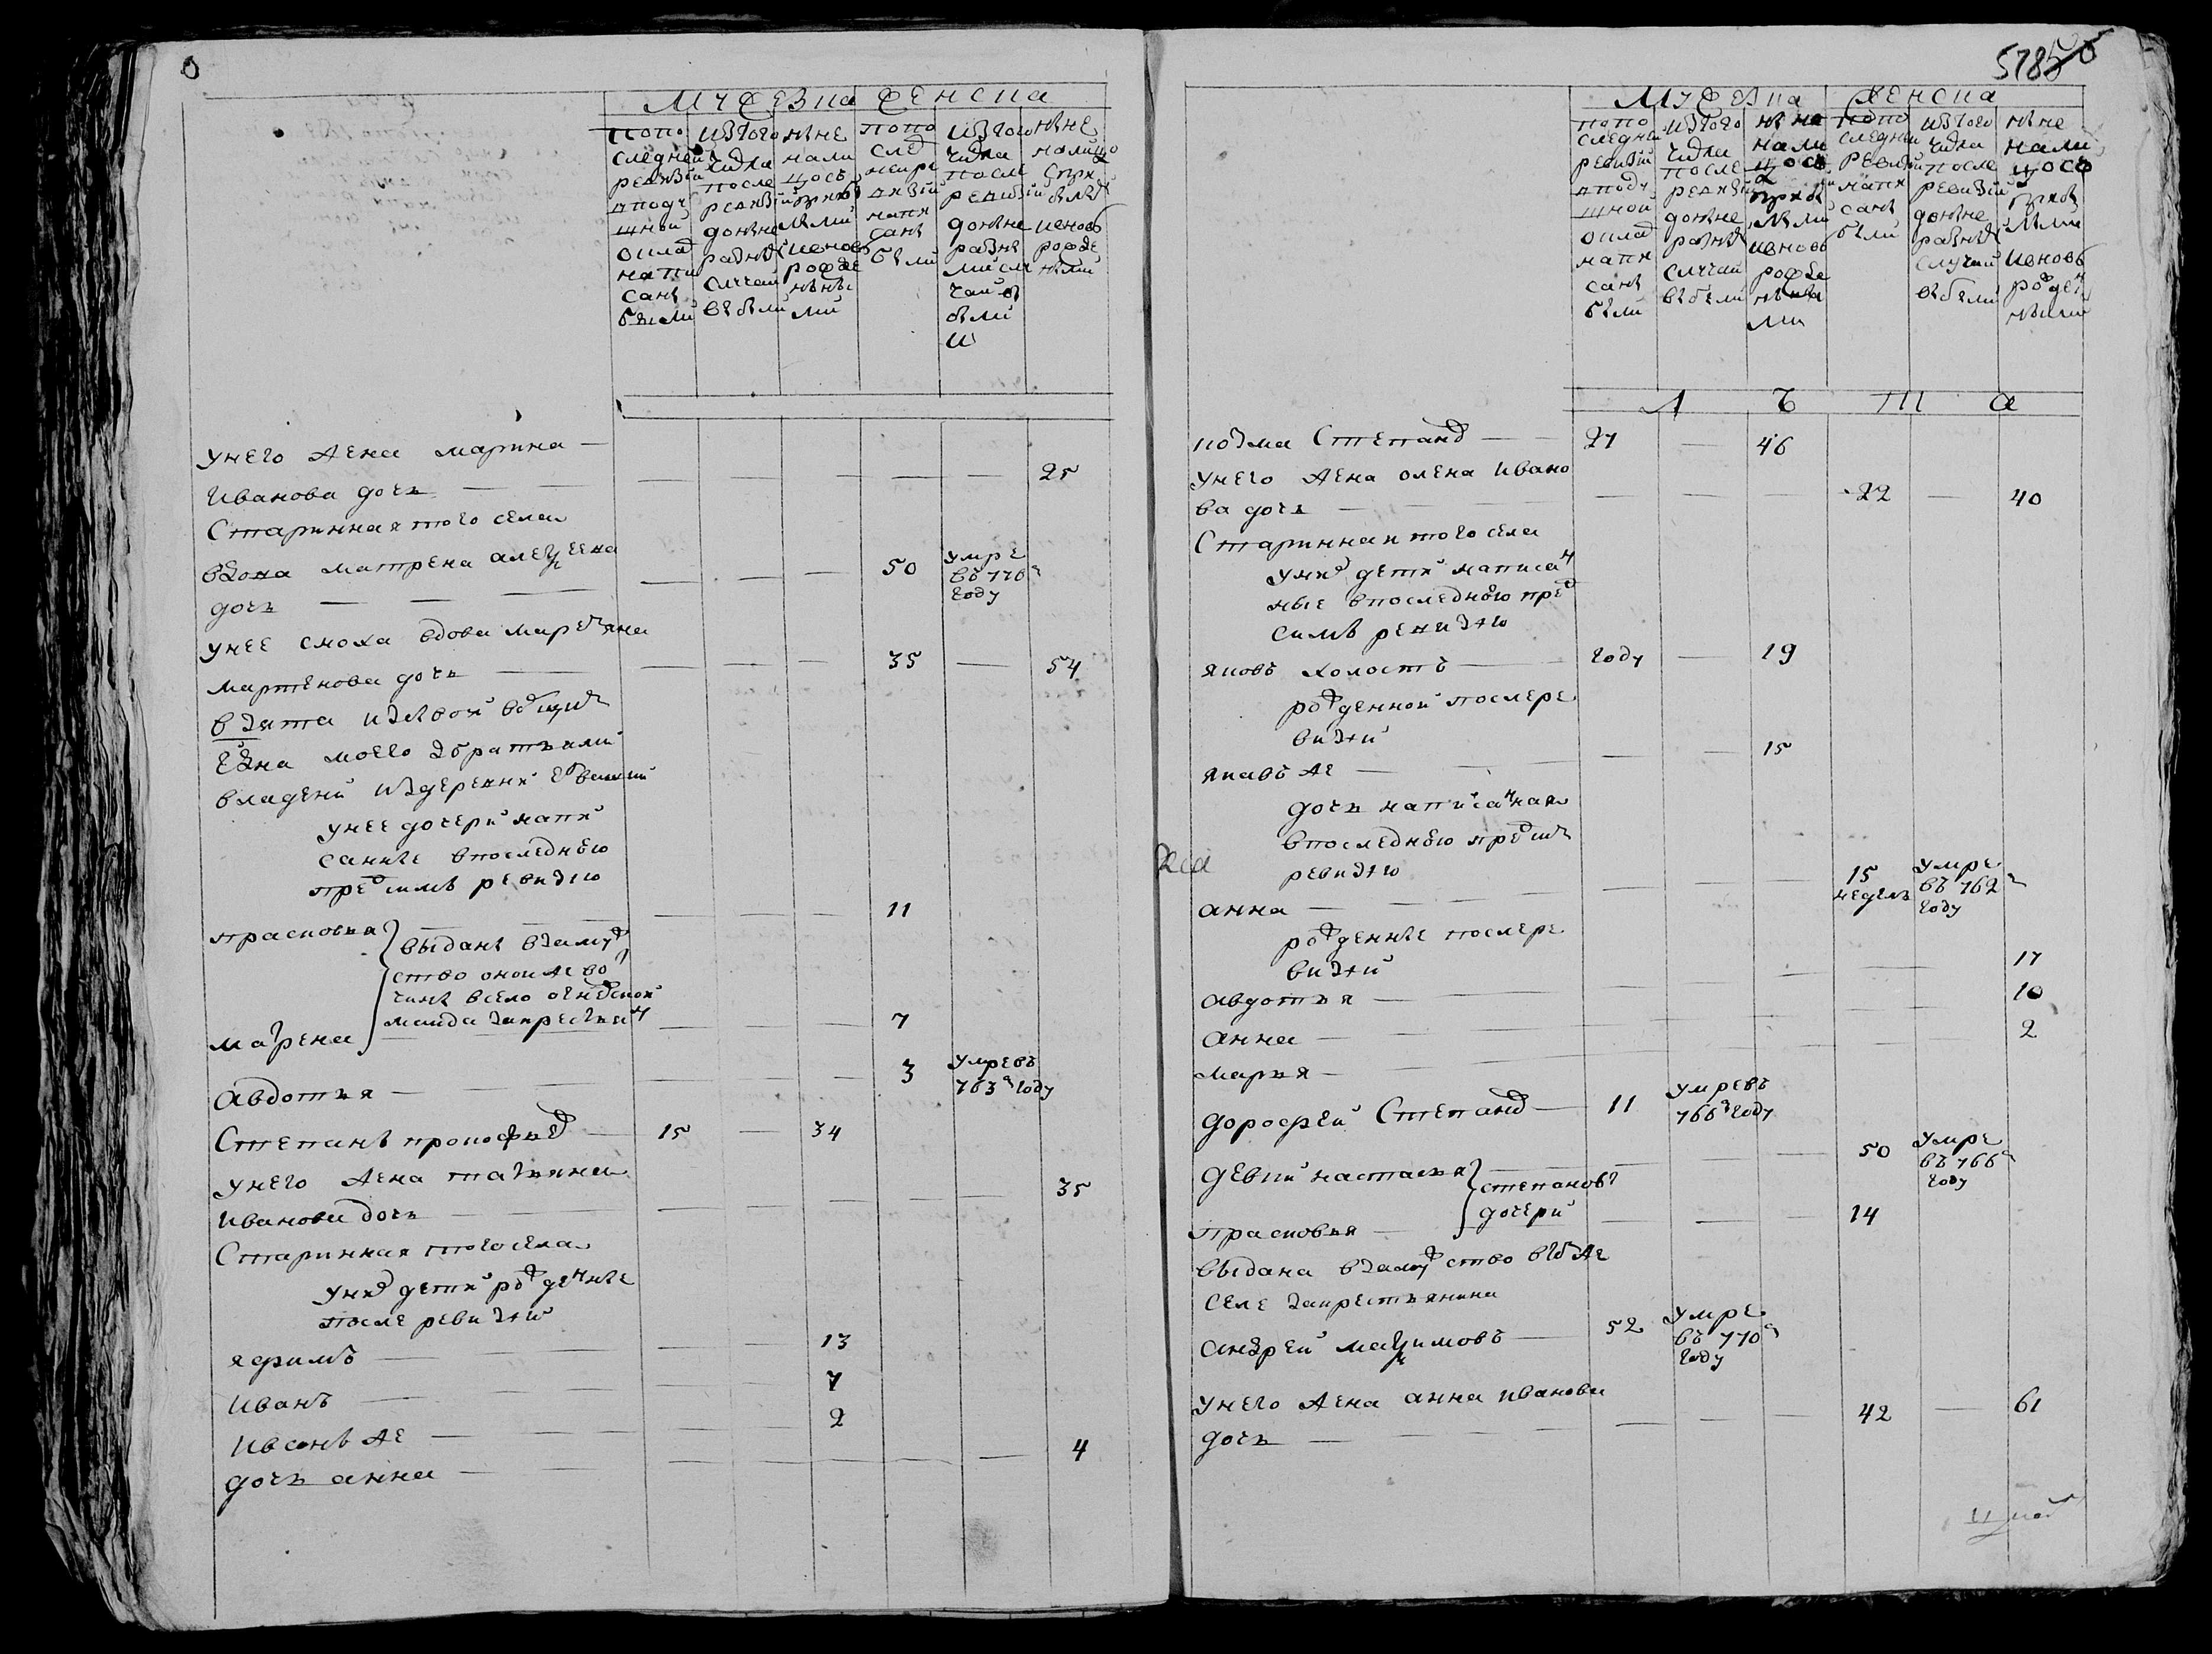 мужеска женска
попо
следней
ревизїи
вподу
шной
оклад
напи
саны
были
изтого
числа
после
ревизїи
доныне
разных
случаи
выбыли
ныне
нали
цось
прибы
лыми
ивновь
рожде
нны
ми
попо
след
ней ре
визїи
напи
саны
были
изтого
числа
после
ревизїи
доныне
разны
ми слу
чаи в
были
ныне
налицо
с при
былы
ивновь
рожде
ными
унего жена марина
Иванова дочь
25
Старинная того села
вдова матрена алексеева
дочь
50
умре
въ 776
году
унее сноха вдова маремьяна
мартынова дочь
35 54
взята
моего збратьями
владени издеревни
унее дочери напи
санные впоследнюю
пред симъ ревизию
прасковья
11
выданы взамуж
ство оной же во
чины всело
закрестьян
матрена
7
Авдотья
3
умре въ
763 году
Степанъ прокофьев
15 34
унего жена татьяна
Иванова дочь
35
Старинная того села
уних дети рожденные
после ревизии
яфимъ
13
Иванъ
7
Иванъ же
2
дочь анна
4
5785
мужеска женска
попо
следней
ревизїи
вподу
шной
оклад
напи
саны
были
изтого
числа
после
ревизїи
доныне
разных
случаи
выбыли
ныне
нали
цось
прибы
лыми
ивновь
рожде
нны
ми
попо
следней
ревизїи
напи
саны
были
изтого
числа
после
ревизїи
доныне
разных
случаи
выбыли
ныне
нали
цось
прибы
лыми
ивновь
рожден
ными
Л Ѣ Т А
козма Степанов
27 46
унего жена олена Ивано
ва дочь
22 40
Старинная того села
уних дети написан
ные впоследнюю пред
симъ ревизию
яковъ холостъ
году 19
рожденной послере
визїи
яковъ же
15
дочь написанная
впоследнюю пред симъ
ревизию
анна
15
недель
умре
въ 762
году
рожденные послере
визїи
авдотья
17
анна
10
марья
2
дорофей Степанов
11
умре въ
766 году
девки настасья
50
умре
въ 766
году
степановы
дочери
прасковья
14
выдана взамужство втож же
селе закрестьянина
андрей максимовъ
52
умре
въ 770
году
унего жена анна иванова
дочь
42 61